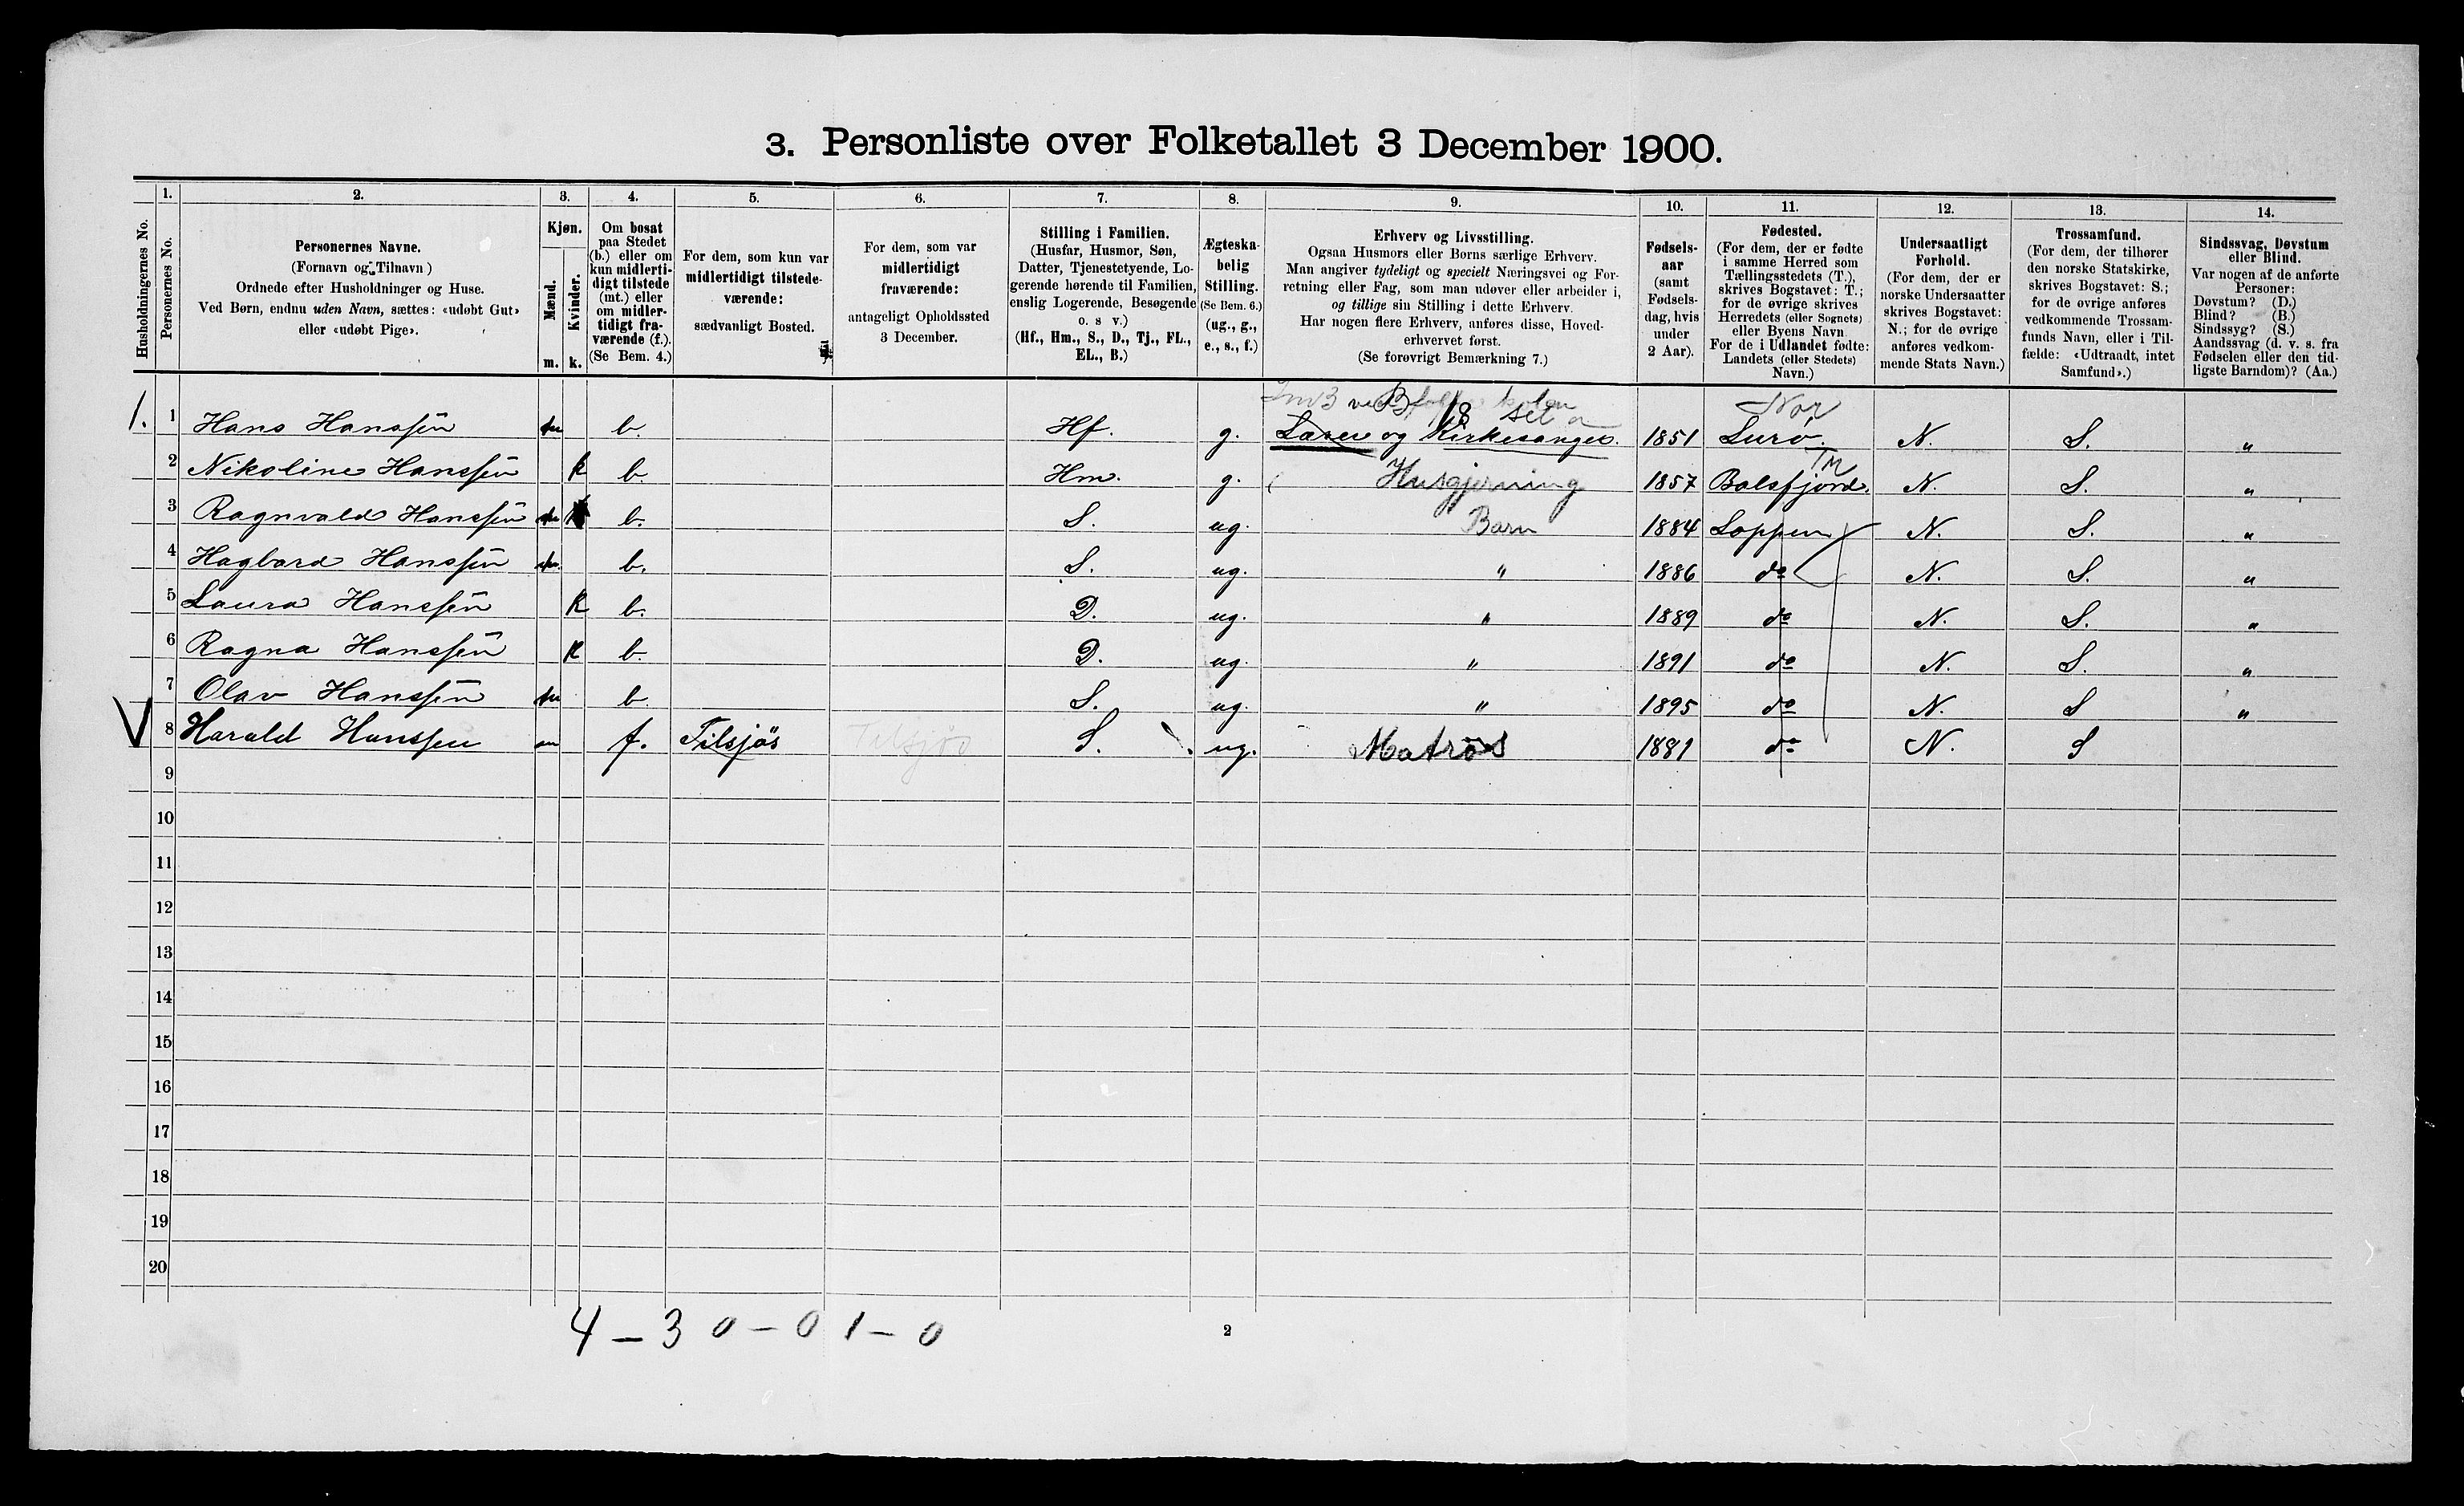 3. Personliste over Folketallet 3 December 1900.
Husholdningernes No.
1.
Personernes No.
2.
Personernes Navne.
(Fornavn og Tilnavn)
Ordnede efter Husholdninger og Huse.
Ved Børn, endnu uden Navn, sættes: «udøbt Gut»
eller «udøbt Pige».
3.
Kjøn.
Mænd.
Kvinder.
m. k.
4.
Om bosat
paa Stedet
(b.) eller om
kun midlerti-
digt tilstede
(mt.) eller
om midler-
tidigt fra-
værende (f.).
(Se Bem. 4.)
5.
For dem, som kun var
midlertidigt tilstede-
værende:
sædvanligt Bosted.
6.
For dem, som var
midlertidigt
fraværende:
antageligt Opholdssted
3 December.
7.
Stilling i Familien.
(Husfar, Husmor, Søn,
Datter, Tjenestetyende, Lo-
gerende hørende til Familien,
enslig Logerende, Besøgende
o. s v.)
(Hf., Hm., S., D., Tj., FL.,
EL., B.)
8.
Ægteska-
belig
Stilling.
(Se Bem. 6.)
(ug., g.,
e., s., f.)
9.
Erhverv og Livsstilling.
Ogsaa Husmors eller Børns særlige Erhverv.
Man angiver tydeligt og specielt Næringsvei og For-
retning eller Fag, som man udøver eller arbeider i,
og tillige sin Stilling i dette Erhverv.
Har nogen flere Erhverv, anføres disse, Hoved-
erhvervet først.
(Se forøvrigt Bemærkning 7.)
10.
Fødsels-
aar
(samt
Fødsels-
dag, hvis
under
2 Aar).
11.
Fødested.
(For dem, der er fødte
i samme Herred som
Tællingsstedets (T.),
skrives Bogstavet: T.;
for de øvrige skrives
Herredets (eller Sognets)
eller Byens Navn.
For de i Udlandet fødte:
Landets (eller Stedets)
Navn.)
12.
Undersaatligt
Forhold.
(For dem, der er
norske Undersaatter
skrives Bogstavet:
N.; for de øvrige
anføres vedkom-
mende Stats Navn.)
13.
Trossamfund.
(For dem, der tilhører
den norske Statskirke,
skrives Bogstavet: S.;
for de øvrige anføres
vedkommende Trossam-
funds Navn, eller i Til-
fælde: «Udtraadt, intet
Samfund».)
14.
Sindssvag, Døvstum
eller Blind.
Var nogen af de anførte
Personer:
Døvstum? (D.)
Blind? (B.)
Sindssyg? (S.)
Aandssvag (d. v. s. fra
Fødselen eller den tid-
ligste Barndom)? (Aa.)
Nor
1. 1 Hans Hanssen m b. Hf. g. Lærer og Kirkesanger. 1851 Lurö. N. S. "
2 Nikoline Hanssen k b Hm. g. Husgjerning 1857 Balsfjord. N. S. "
3 Ragnvald Hanssen m b. S. ug. Barn 1884 Loppen N. S. "
4 Hagbard Hanssen m. b. S. ug. " 1886 do N. S. "
5 Laura Hanssen k b. D. ug. " 1889 do N. S. "
6 Ragna Hanssen k b. D. ug. " 1891 do N. S. "
7 Olav Hanssen m b S. ug. " 1895 do N. S "
V 8 Harald Hanssen m f. Tilsjös Tilsjös S. ug. Matros 1881 do N. S
9
10
11
12
13
14
15
16
17
18
19
20
4 – 3 0 – 0 1 – 0
2